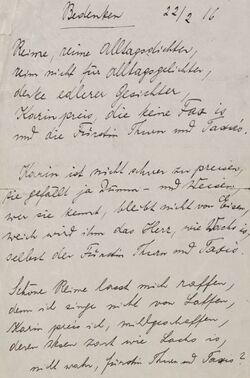 Bedenken 22/2 16
Reime, reime Alltagsdichter,
reim nicht für Alltagsgelichter,
denke edlerer Gesichter,
Karin preis, die keine Fax is
und die Fürstin Thurn und Taxis.
Karin ist nicht schwer zu preisen,
sie gefällt ja Dumm- und Weisen,
wer sie kennt, bleibt nicht von Eisen,
weich wird ihm das Herz, wie Wachs is,
selbst der Fürstin Thurn und Taxis.
Schöne Reime lasst mich raffen,
denn ich singe nicht von Laffen,
Karin preis ich, mildgeschaffen,
deren Wesen zart wie Lachs is,
nicht wahr, Fürstin Thurn und Taxis?